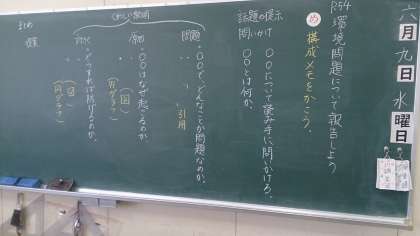 六月九日水曜日
P.54 環境問題について報告しよう
め 構成メモをかこう。
話題の提示
問いかけ
○○について読み手に問いかける。
○○とは何か。
くわしい説明
問題
・○○で、どんなことが問題なのか。
引用
原因
・○○はなぜ起こるのか
(図)
対さく
・どうすれば防げるのか。
(図)
まとめ
提案